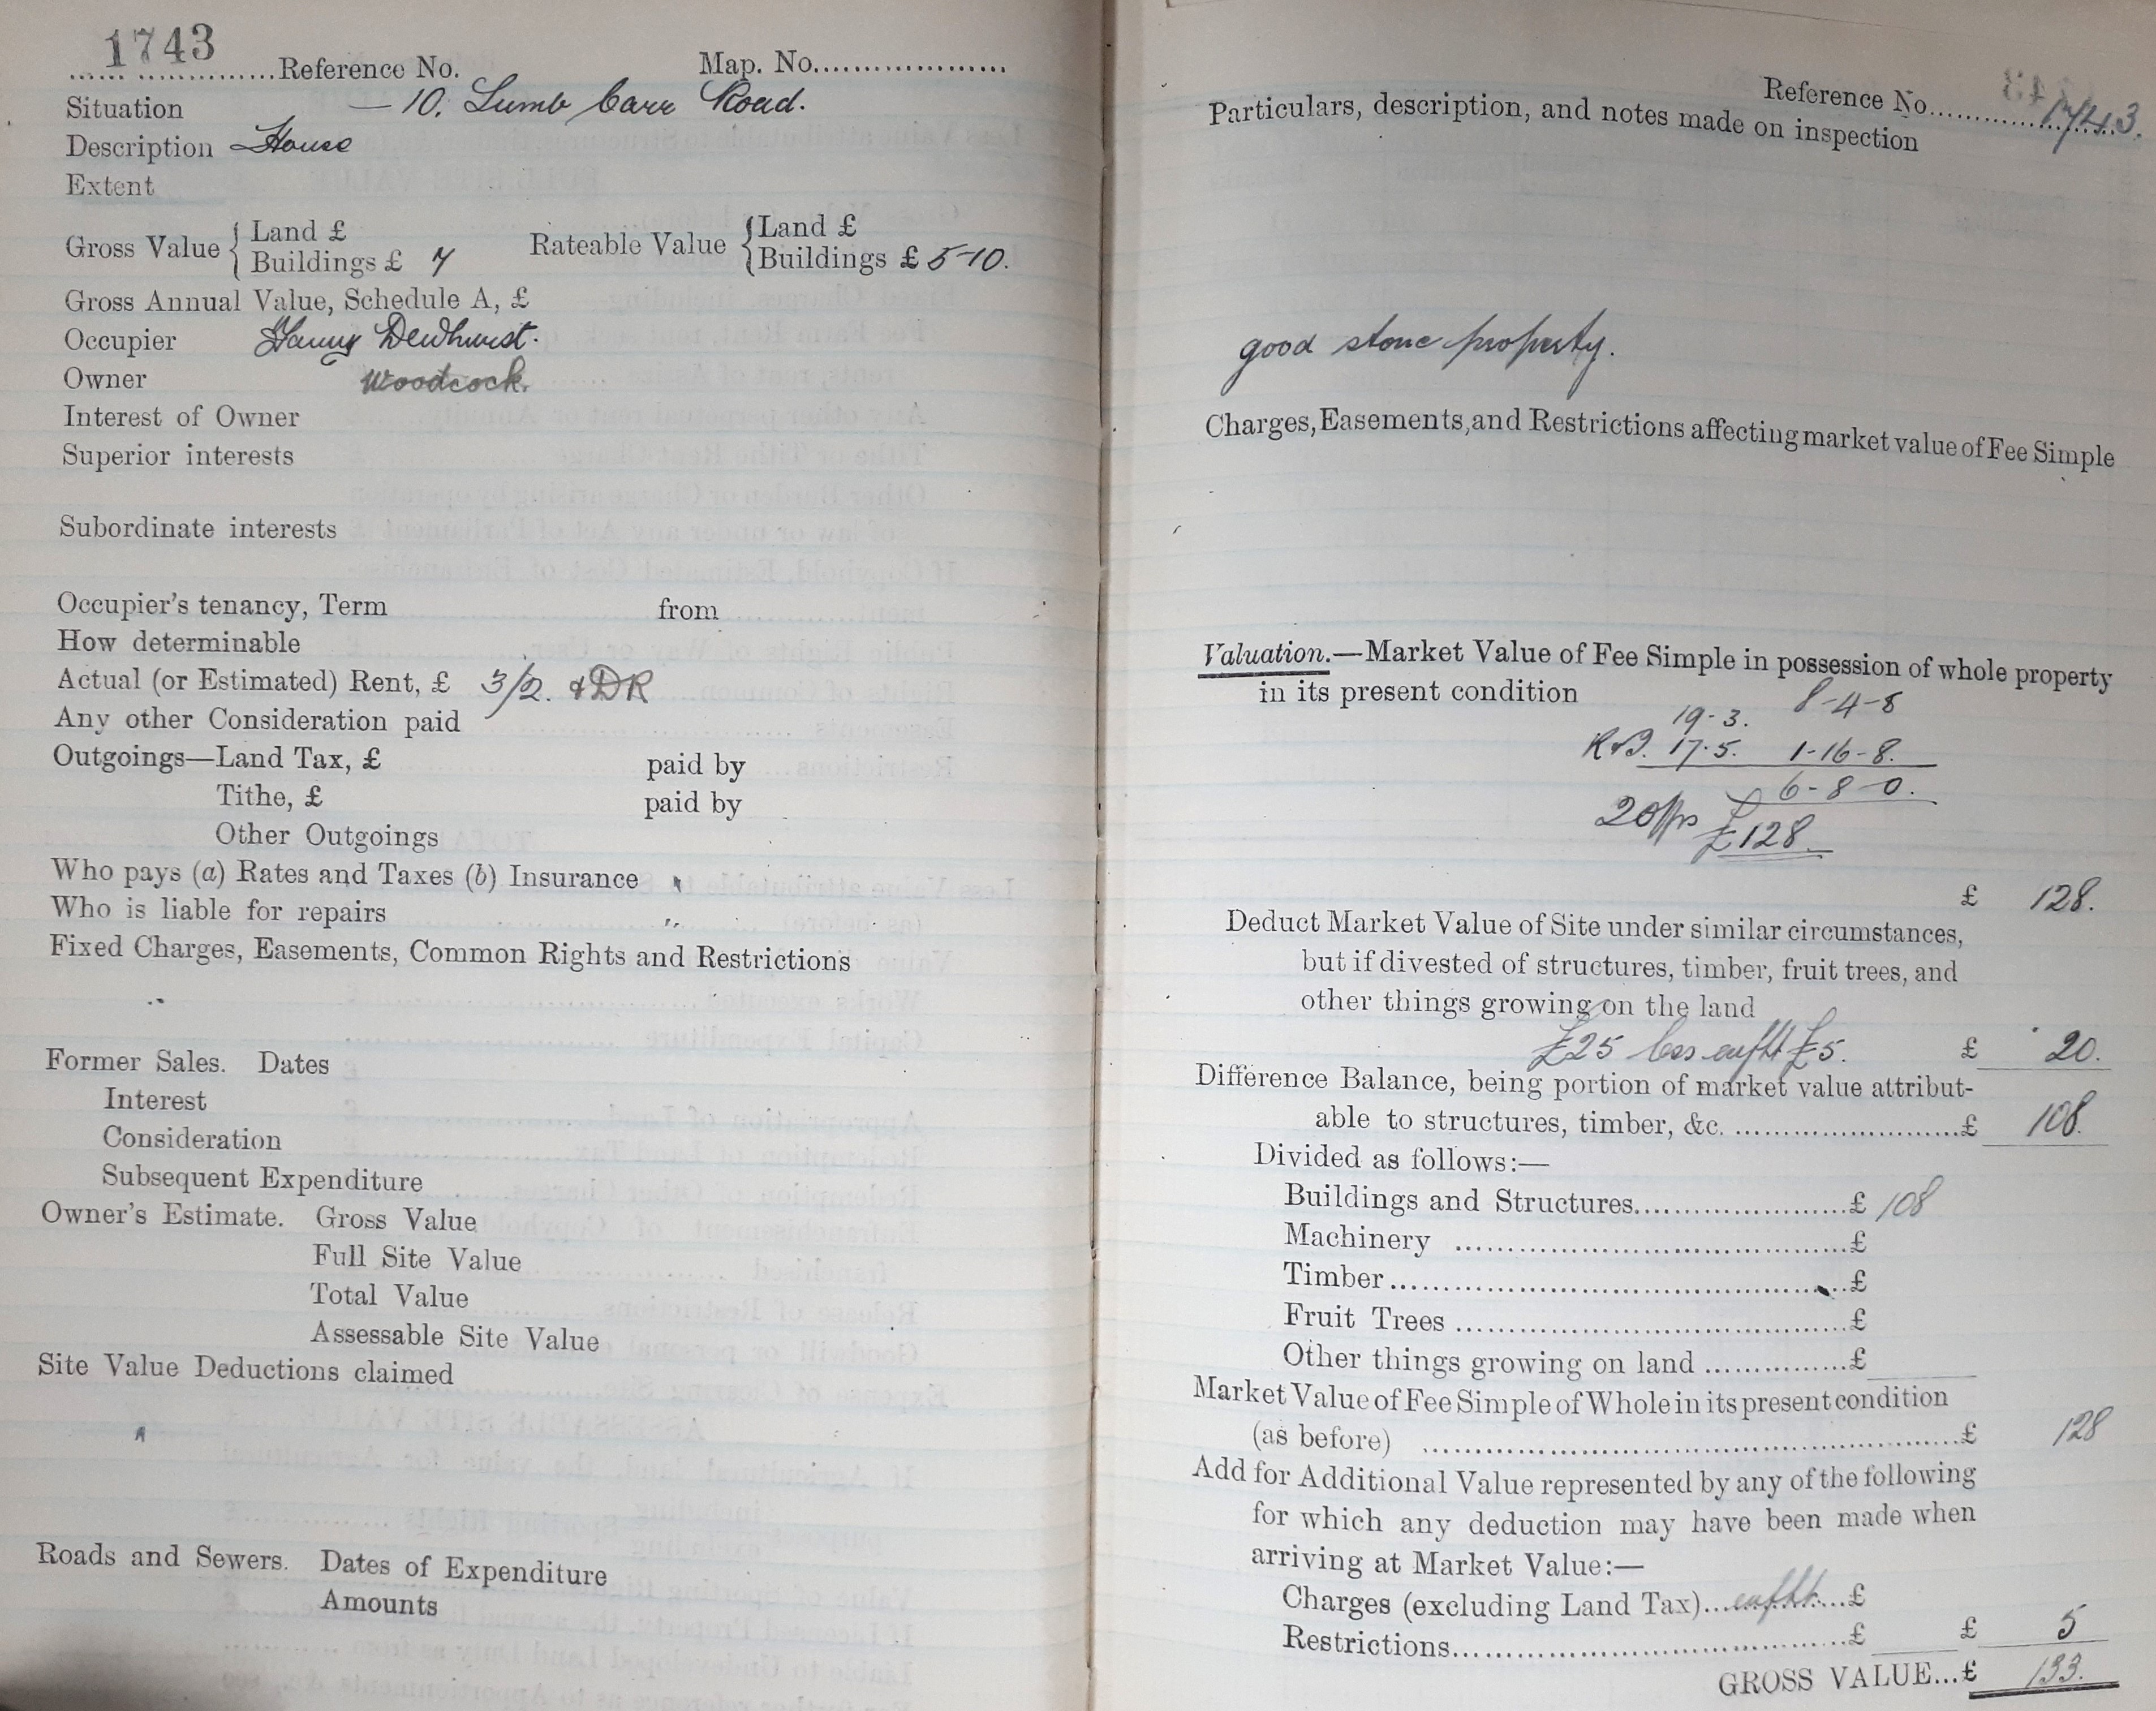 1743
Reference No. Map. No.
Situation — 10. Lumb Carr Road.
Description House
Extent
Gross Value { Land £
Buildings £ 7
Rateable Value { Land £
Buildings £ 5-10.
Gross Annual Value, Schedule A, £
Occupier Fanny Dewhurst.
Owner Woodcock.
Interest of Owner
Superior interests
Subordinate interests
Occupier's tenancy, Term from
How determinable
Actual (or Estimated) Rent, £ 3/2. & DR
Any other Consideration paid
Outgoings—Land Tax, £ paid by
Tithe, £ paid by
Other Outgoings
Who pays (a) Rates and Taxes (b) Insurance
Who is liable for repairs "
Fixed Charges, Easements, Common Rights and Restrictions
Former Sales. Dates
Interest
Consideration
Subsequent Expenditure
Owner's Estimate. Gross Value
Full Site Value
Total Value
Assessable Site Value
Site Value Deductions claimed
Roads and Sewers. Dates of Expenditure
Amounts
Reference No. 1743.
Particulars, description, and notes made on inspection
good stone property.
Charges, Easements, and Restrictions affecting market value of Fee Simple
Valuation.—Market Value of Fee Simple in possession of whole property
in its present condition
19-3. 8-4-8
17.5. 1-16-8.
6-8-0.
20 £128.
£ 128.
Deduct Market Value of Site under similar circumstances,
but if divested of structures, timber, fruit trees, and
other things growing on the land
£25 less £5. £ 20.
Difference Balance, being portion of market value attribut-
able to structures, timber, &c. £ 108.
Divided as follows:—
Buildings and Structures £ 108
Machinery £
Timber £
Fruit Trees £
Other things growing on land £
Market Value of Fee Simple of Whole in its present condition
(as before) £ 128
Add for Additional Value represented by any of the following
for which any deduction may have been made when
arriving at Market Value:—
Charges (excluding Land Tax) £
Restrictions £ £ 5
GROSS VALUE...£ 133.